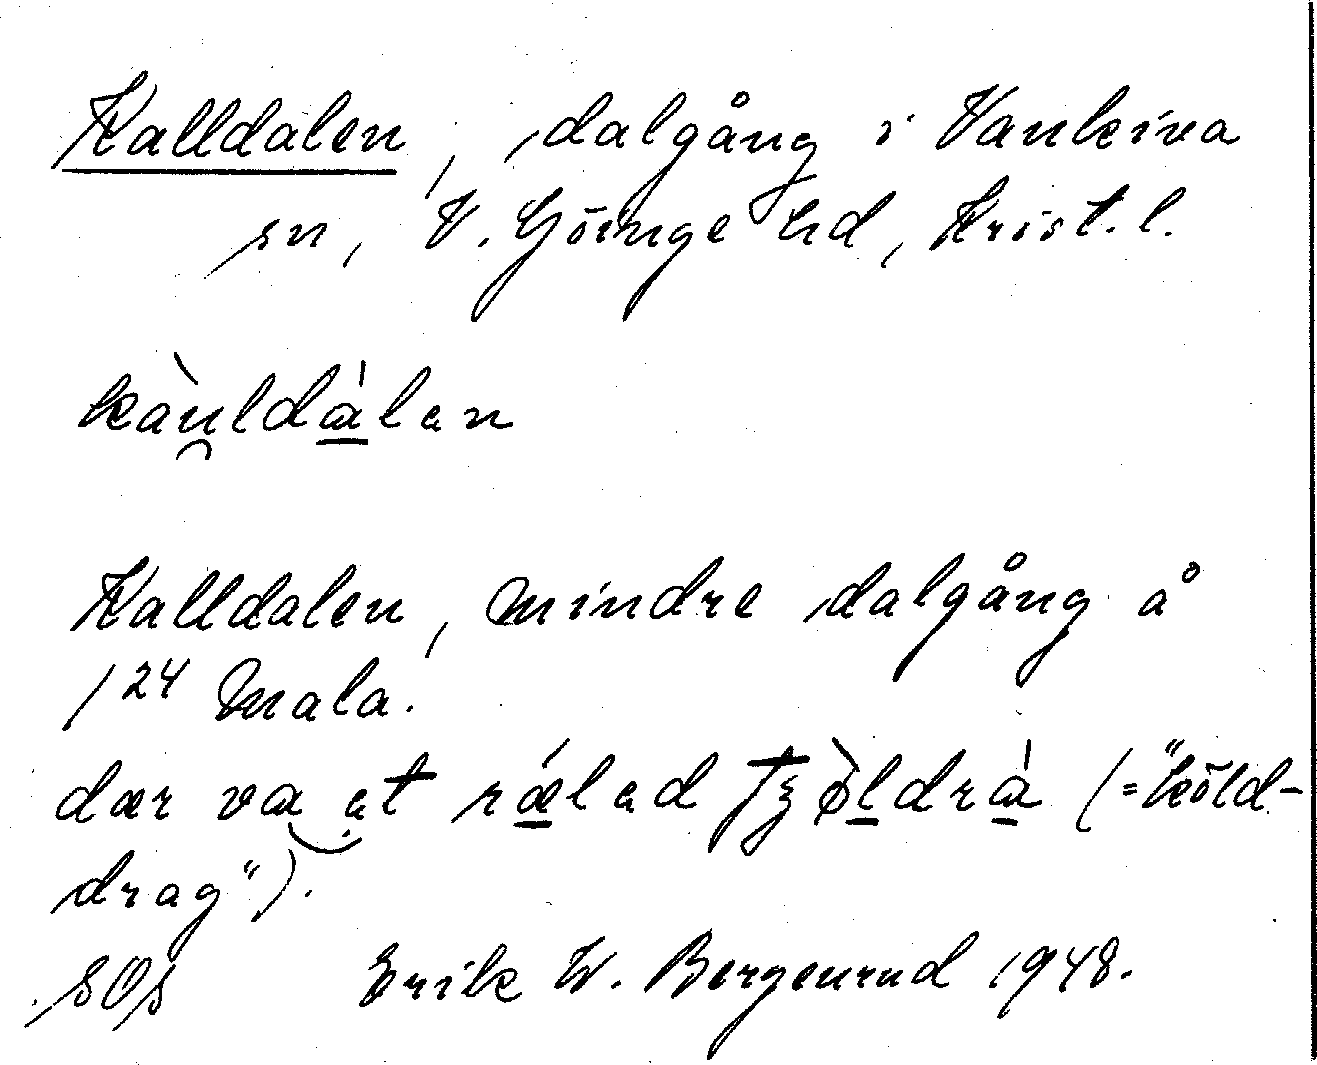 Kalldalen, dalgång i Vankiva
sn, V. Göinge hd, Krist. l.
kàu̯ldа̱̍lən
Kalldalen, mindre dalgång å
1²⁴ Mala.
dær va ət rǽ̱ləd tʒø̀ḻdrа̱̍ (="köld-
drag").
SOS Erik W. Bergenrud 1948.